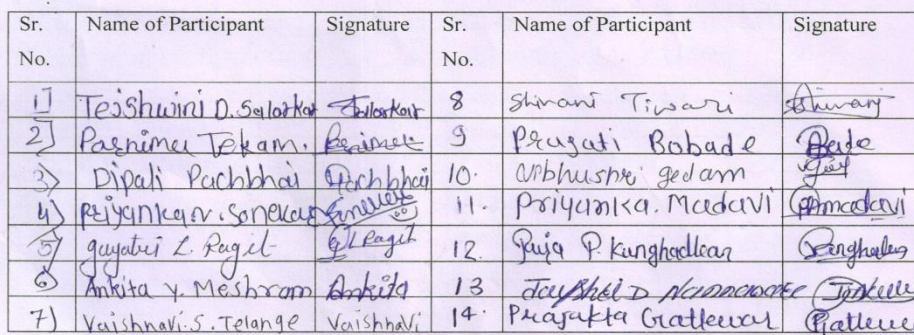 Sr. No. Name of Participant Signature Sr. No. Name of Participant Signature
1] Tejshwini D. Selorkar Selorkar 8 Shivani Tiwari
2] Parnima Tekam. 9 Pragati Bobade
3) Dipali Pachbhai Pachbhai 10. gedam
4) Priyanka N. Sonekar 11. Priyanka. Madavi PMadavi
5) gayatri L. Ragit GLRagit 12. Puja P. Kunghadkar
6) Ankita Y. Meshram Ankita 13 D
7) Vaishnavi. S. Telange Vaishnavi 14. Prajakta Gattewar